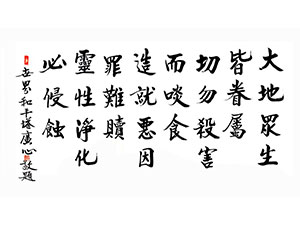 大地眾生
皆眷屬
切勿殺害
而啖食
造就惡因
罪難贖
靈性淨化
必侵蝕
世界和平塔廣心敬題